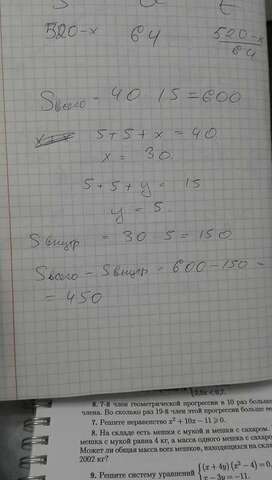 S u t
520-x 64 520-x/64
Sвсего = 40 15 = 600
5+5+x = 40
x = 30.
5+5+y = 15
y = 5.
Sвнутр = 30 5 = 150
Sвсего - Sвнутр = 600-150 =
= 450
6. 7-й член геометрической прогрессии в 10 раз больше
члена. Во сколько раз 19-й член этой прогрессии больше ее
7. Решите неравенство x² + 10x - 11 ⩾ 0.
8. На складе есть мешки с мукой и мешки с сахаром.
мешка с мукой равна 4 кг, а масса одного мешка с сахаро
Может ли общая масса всех мешков, находящихся на склад
2002 кг?
9. Решите систему уравнений {(x + 4y)(x² - 4) = 0,
x - 3y = -11.